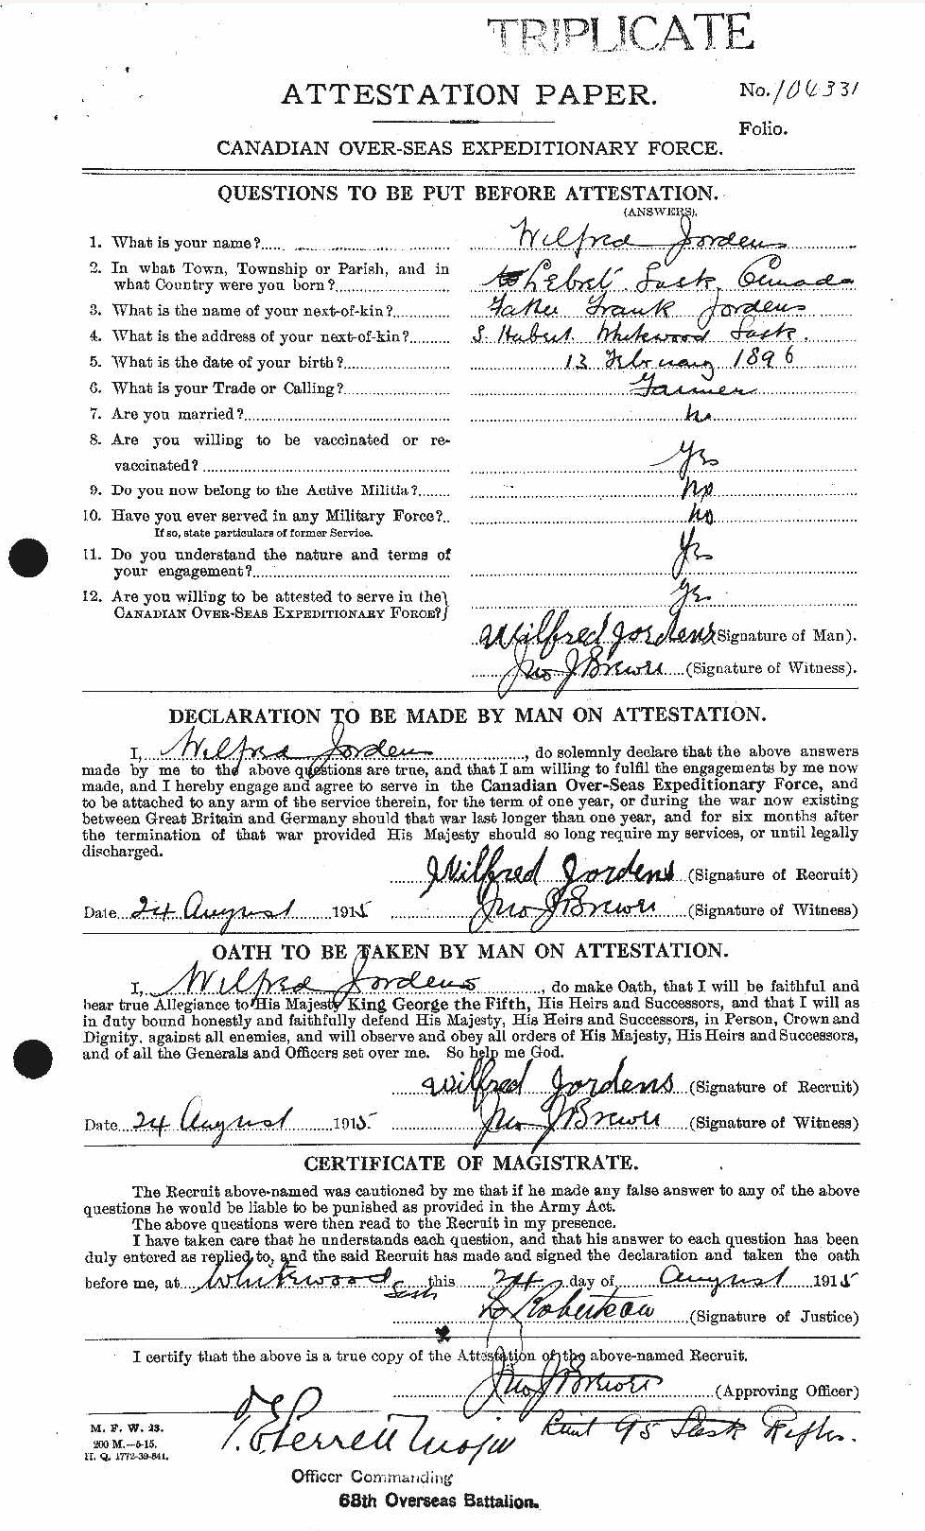 TRIPLICATE
ATTESTATION PAPER.
No. 104331
Folio.
CANADIAN OVER-SEAS EXPEDITIONARY FORCE.
QUESTIONS TO BE PUT BEFORE ATTESTATION.
(ANSWERS).
1. What is your name? Wilfred Jordens
2. In what Town, Township or Parish, and in
what Country were you born? Lebret Sask. Canada
3. What is the name of your next-of-kin? Father Frank Jordens
4. What is the address of your next-of-kin? S. Hubert Whitewood Sask.
5. What is the date of your birth? 13 February 1896
6. What is your Trade or Calling? Farmer
7. Are you married? no
8. Are you willing to be vaccinated or re-
vaccinated? Yes
9. Do you now belong to the Active Militia? no
10. Have you ever served in any Military Force? no
If so, state particulars of former Service.
11. Do you understand the nature and terms of
your engagement? Yes
12. Are you willing to be attested to serve in the
CANADIAN OVER-SEAS EXPEDITIONARY FORCE? Yes
Wilfred Jordens (Signature of Man).
Jno J Brewer (Signature of Witness).
DECLARATION TO BE MADE BY MAN ON ATTESTATION.
I, Wilfred Jordens, do solemnly declare that the above answers
made by me to the above questions are true, and that I am willing to fulfil the engagements by me now
made, and I hereby engage and agree to serve in the Canadian Over-Seas Expeditionary Force, and
to be attached to any arm of the service therein, for the term of one year, or during the war now existing
between Great Britain and Germany should that war last longer than one year, and for six months after
the termination of that war provided His Majesty should so long require my services, or until legally
discharged.
Wilfred Jordens (Signature of Recruit)
Date 24 August 1915 Jno J Brewer (Signature of Witness)
OATH TO BE TAKEN BY MAN ON ATTESTATION.
I, Wilfred Jordens, do make Oath, that I will be faithful and
bear true Allegiance to His Majesty King George the Fifth, His Heirs and Successors, and that I will as
in duty bound honestly and faithfully defend His Majesty, His Heirs and Successors, in Person, Crown and
Dignity, against all enemies, and will observe and obey all orders of His Majesty, His Heirs and Successors,
and of all the Generals and Officers set over me. So help me God.
Wilfred Jordens (Signature of Recruit)
Date 24 August 1915 Jno J Brewer (Signature of Witness)
CERTIFICATE OF MAGISTRATE.
The Recruit above-named was cautioned by me that if he made any false answer to any of the above
questions he would be liable to be punished as provided in the Army Act.
The above questions were then read to the Recruit in my presence.
I have taken care that he understands each question, and that his answer to each question has been
duly entered as replied to, and the said Recruit has made and signed the declaration and taken the oath
before me, at Whitewood Sask this 24 day of August 1915
Robiteau (Signature of Justice)
I certify that the above is a true copy of the Attestation of the above-named Recruit.
Jno J Brewer (Approving Officer)
Lieut 95 Sask Rifles.
M. F. W. 23.
200 M.—6-15.
H. Q. 1772-39-841.
Perrett Major
Officer Commanding
68th Overseas Battalion.